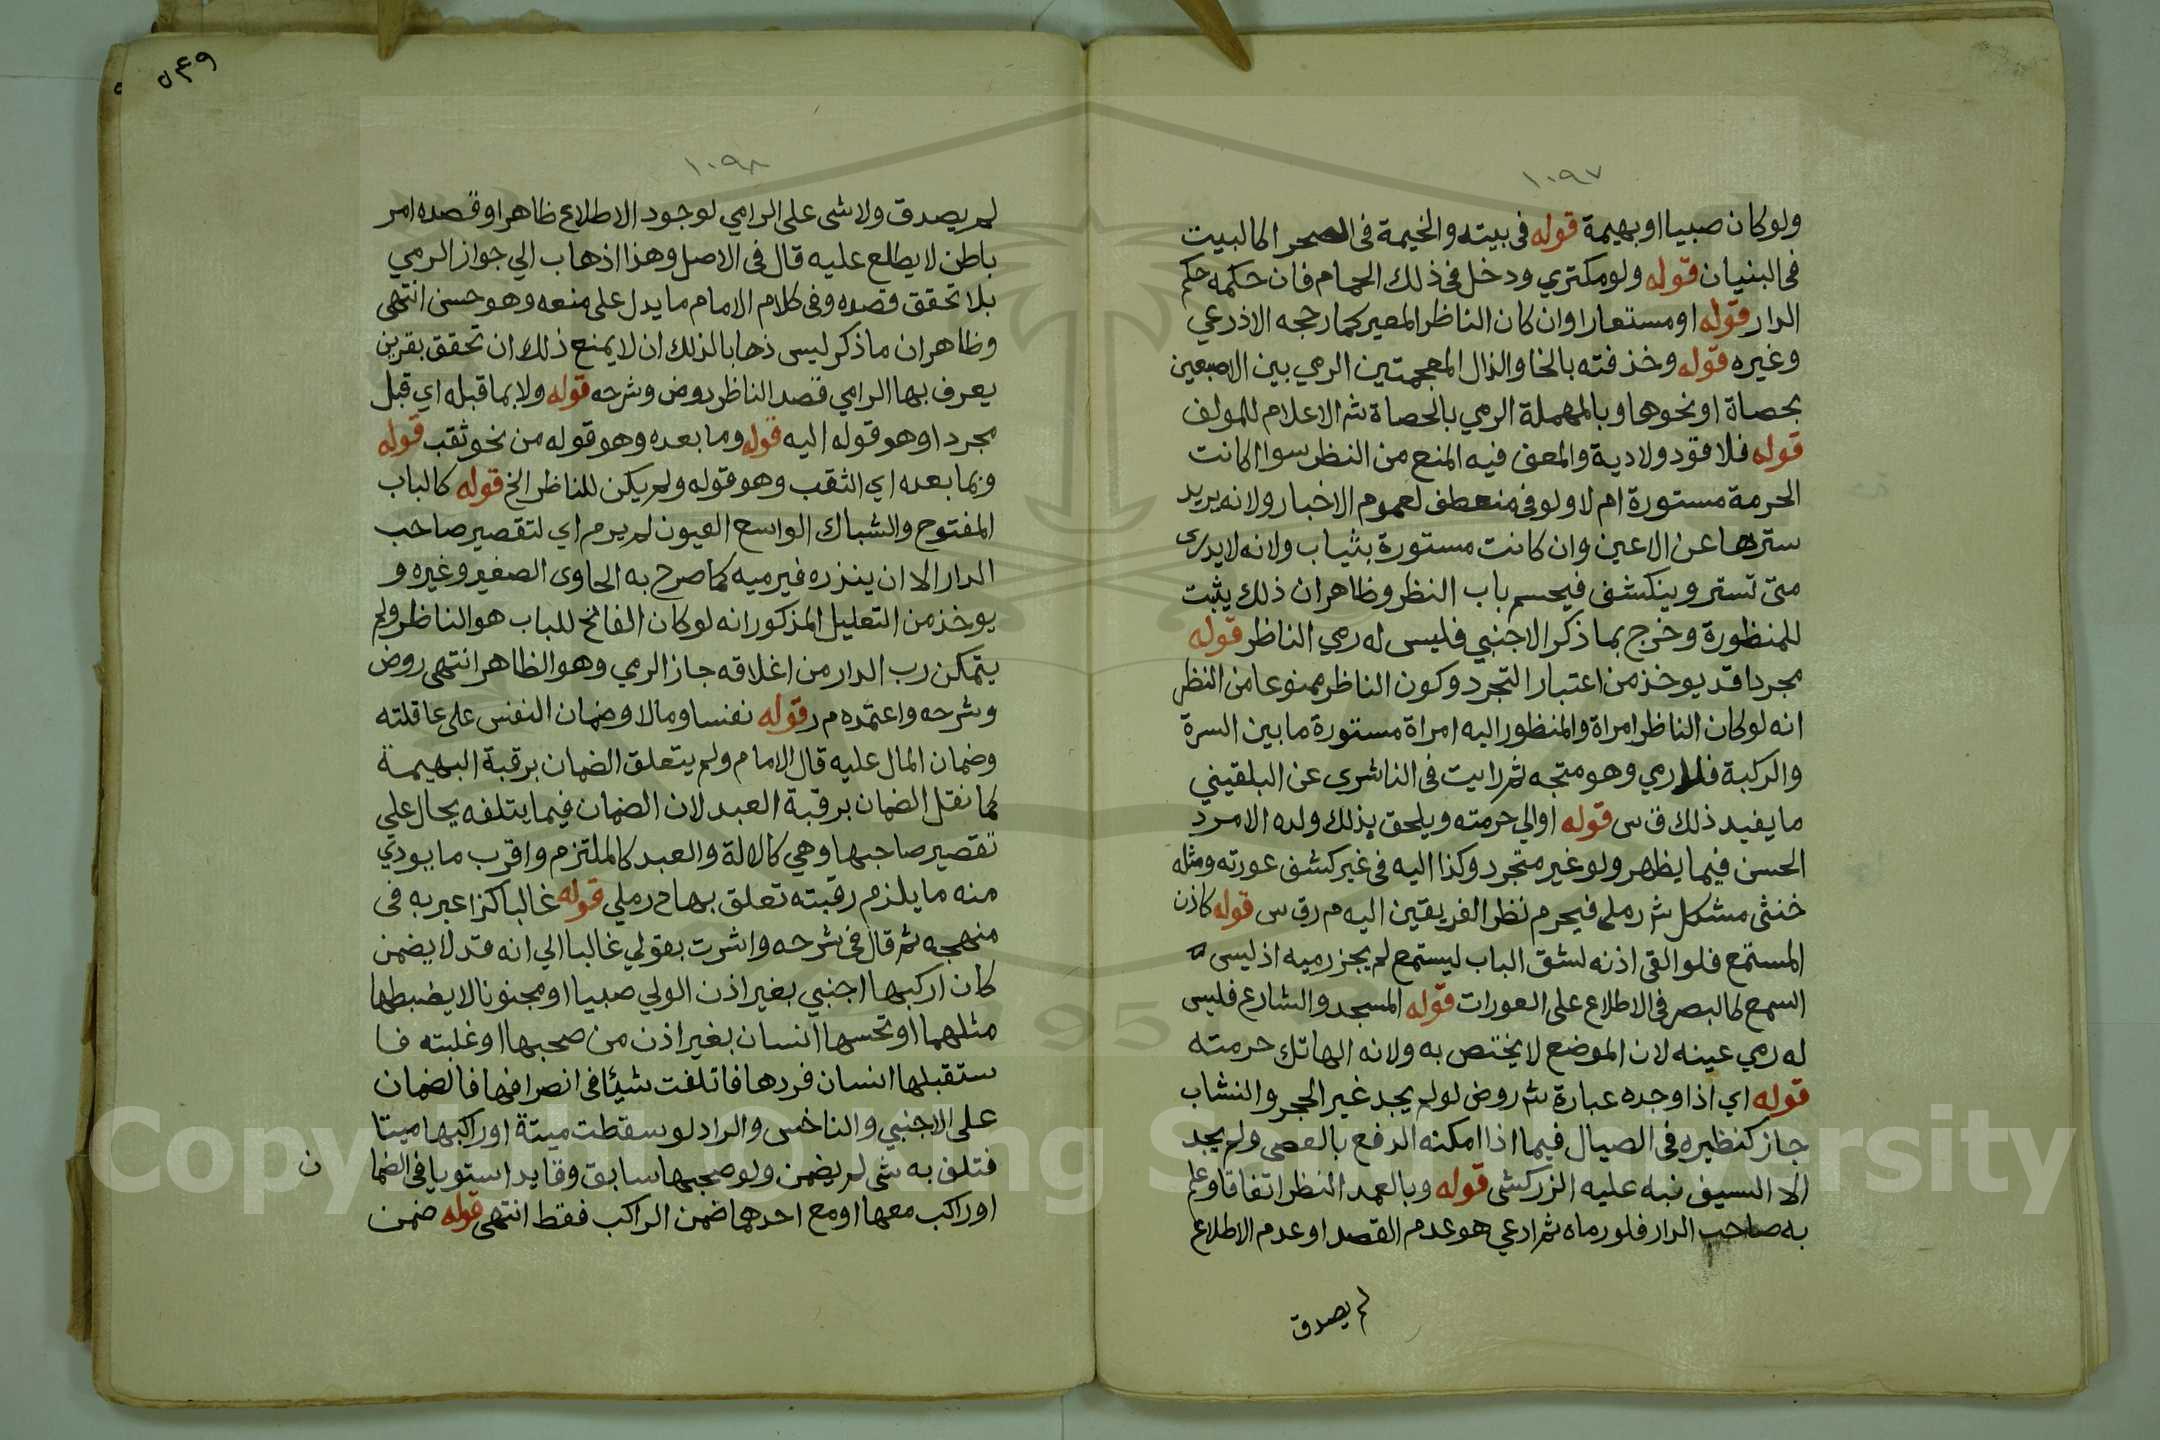 ١٠٩٧
ولو كان صبيا او بهيمة قوله في بيته والخيمة في الصحرا كالبيت
في البنيان قوله ولو مكتري ودخل في ذلك الحمام فان حكمه حكم
الدار قوله او مستعارا وان كان الناظر المعير كما رجحه الاذرعي
وغيره قوله وخذفته بالخا والذال المعجمتين الرمي بين الاصبعين
بحصاة او نحوها وبالمهملة الرمي بالحصاة شر الاعلام للمولف
قوله فلا قود ولا دية والمعنى فيه المنع من النظر سوا اكانت
الحرمة مستورة ام لا ولو في منعطف لعموم الاخبار ولانه يريد
سترها عن الاعين وان كانت مستورة بثياب ولانه لا يدرى
متى تستر وينكشف فيحسم باب النظر وظاهر ان ذلك يثبت
للمنظورة وخرج بما ذكر الاجنبي فليس له رمي الناظر قوله
مجردا قد يوخذ من اعتبار التجرد وكون الناظر ممنوعا من النظر
انه لو كان الناظر امراة والمنظور اليه امراة مستورة ما بين السرة
والركبة فلا رمي وهو متجه ثم رايت في الناشري عن البلقيني
ما يفيد ذلك ق س قوله او الي حرمته ويلحق بذلك ولده الامرد
الحسن فيما يظهر ولو غير متجرد وكذا اليه في غير كشف عورته ومثله
خنثى مشكل شر رملي فيحرم نظر الفريقين اليه م ر ق س قوله كاذن
المستمع فلو القى اذنه لشق الباب ليستمع لم يجز رميه اذ ليس
السمع كالبصر في الاطلاع على العورات قوله المسجد والشارع فليس
له رمي عينه لان الموضع لا يختص به ولانه الهاتك حرمته
قوله اي اذا وجده عبارة شر روض لو لم يجد غير الحجر والنشاب
جاز كنظيره في الصيال فيما اذا امكنه الدفع بالعصى ولم يجد
الا السيف نبه عليه الزركشي قوله وبالعمد النظر اتفاقا وعلم
به صاحب الدار فلو رماه ثم ادعي هو عدم القصد او عدم الاطلاع
لم يصدق
٥٤٩
١٠٩٨
لم يصدق ولا شى على الرامي لوجود الاطلاع ظاهرا وقصده امر
باطن لا يطلع عليه قال في الاصل وهذا اذهاب الي جواز الرمي
بلا تحقق قصده وفي كلام الامام ما يدل على منعه وهو حسن انتهى
وظاهر ان ما ذكر ليس ذهابا لذلك ان لا يمنع ذلك ان تحقق بقرين
يعرف بها الرامي قصد الناظر روض وشرحه قوله ولا بما قبله اي قبل
مجردا وهو قوله اليه قوله وما بعده وهو قوله من نحو ثقب قوله
وبما بعده اي الثقب وهو قوله ولم يكن للناظر الخ قوله كالباب
المفتوح والشباك الواسع العيون لم يرم اي لتقصير صاحب
الدار الا ان ينذره فيرميه كما صرح به الحاوى الصغير وغيره و
يوخذ من التعليل المذكور انه لو كان الفاتح للباب هو الناظر ولم
يتمكن رب الدار من اغلاقه جاز الرمي وهو الظاهر انتهى روض
وشرحه واعتمده م ر قوله نفسا ومالا وضمان النفس على عاقلته
وضمان المال عليه قال الامام ولم يتعلق الضمان برقبة البهيمة
كما نقل الضمان برقبة العبد لان الضمان فيما يتلفه يحال علي
تقصير صاحبها وهي كالالة والعبد كالملتزم واقرب ما يودي
منه ما يلزم رقبته تعلق بها ح رملي قوله غالبا كذا عبر به في
منهجه ثم قال في شرحه واشرت بقولي غالبا الي انه قد لا يضمن
كان اركبها اجنبي بغير اذن الولي صبيا او مجنونا لا يضبطها
مثلهما او نخسها انسان بغير اذن من صحبها او غلبته فا
ستقبلها انسان فردها فاتلفت شيئا في انصرافها فالضمان
على الاجنبي والناخس والراد لو سقطت ميتة او راكبها ميتا
فتلف به شى لم يضمن ولو صحبها سابق وقايد استويا في الضما ن
او راكب معها او مع احدهما ضمن الراكب فقط انتهى قوله ضمن
Copyright © King Saud University
1957